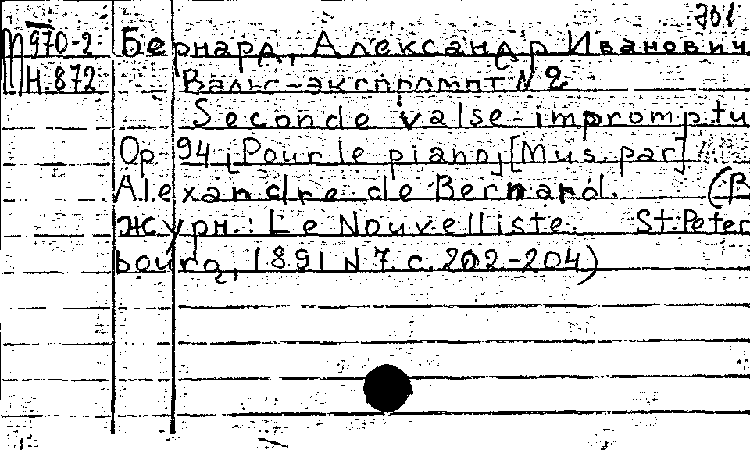 731
М 970-2 Бернард, Александр Иванович
Н.872 Вальс-экспромпт N 2
Seconde valse-impromptu
Op. 94, Pour le piano, [Mus. par]
Alexandre de Bernard. (В
журн.: Le Nouvelliste. St.Peter
bourg, 1891 N 7. с. 202-204)